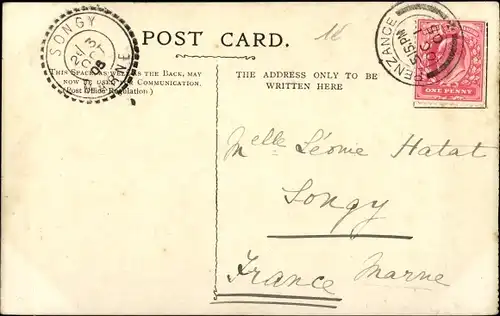 POST CARD.
THIS SPACE AS WELL AS THE BACK, MAY
NOW BE USED FOR COMMUNICATION.
(Post Office Regulation)
THE ADDRESS ONLY TO BE
WRITTEN HERE
SONGY
MARNE
PENZANCE
5.15PM
ONE PENNY
Melle Léonie Hatat
Songy
France Marne